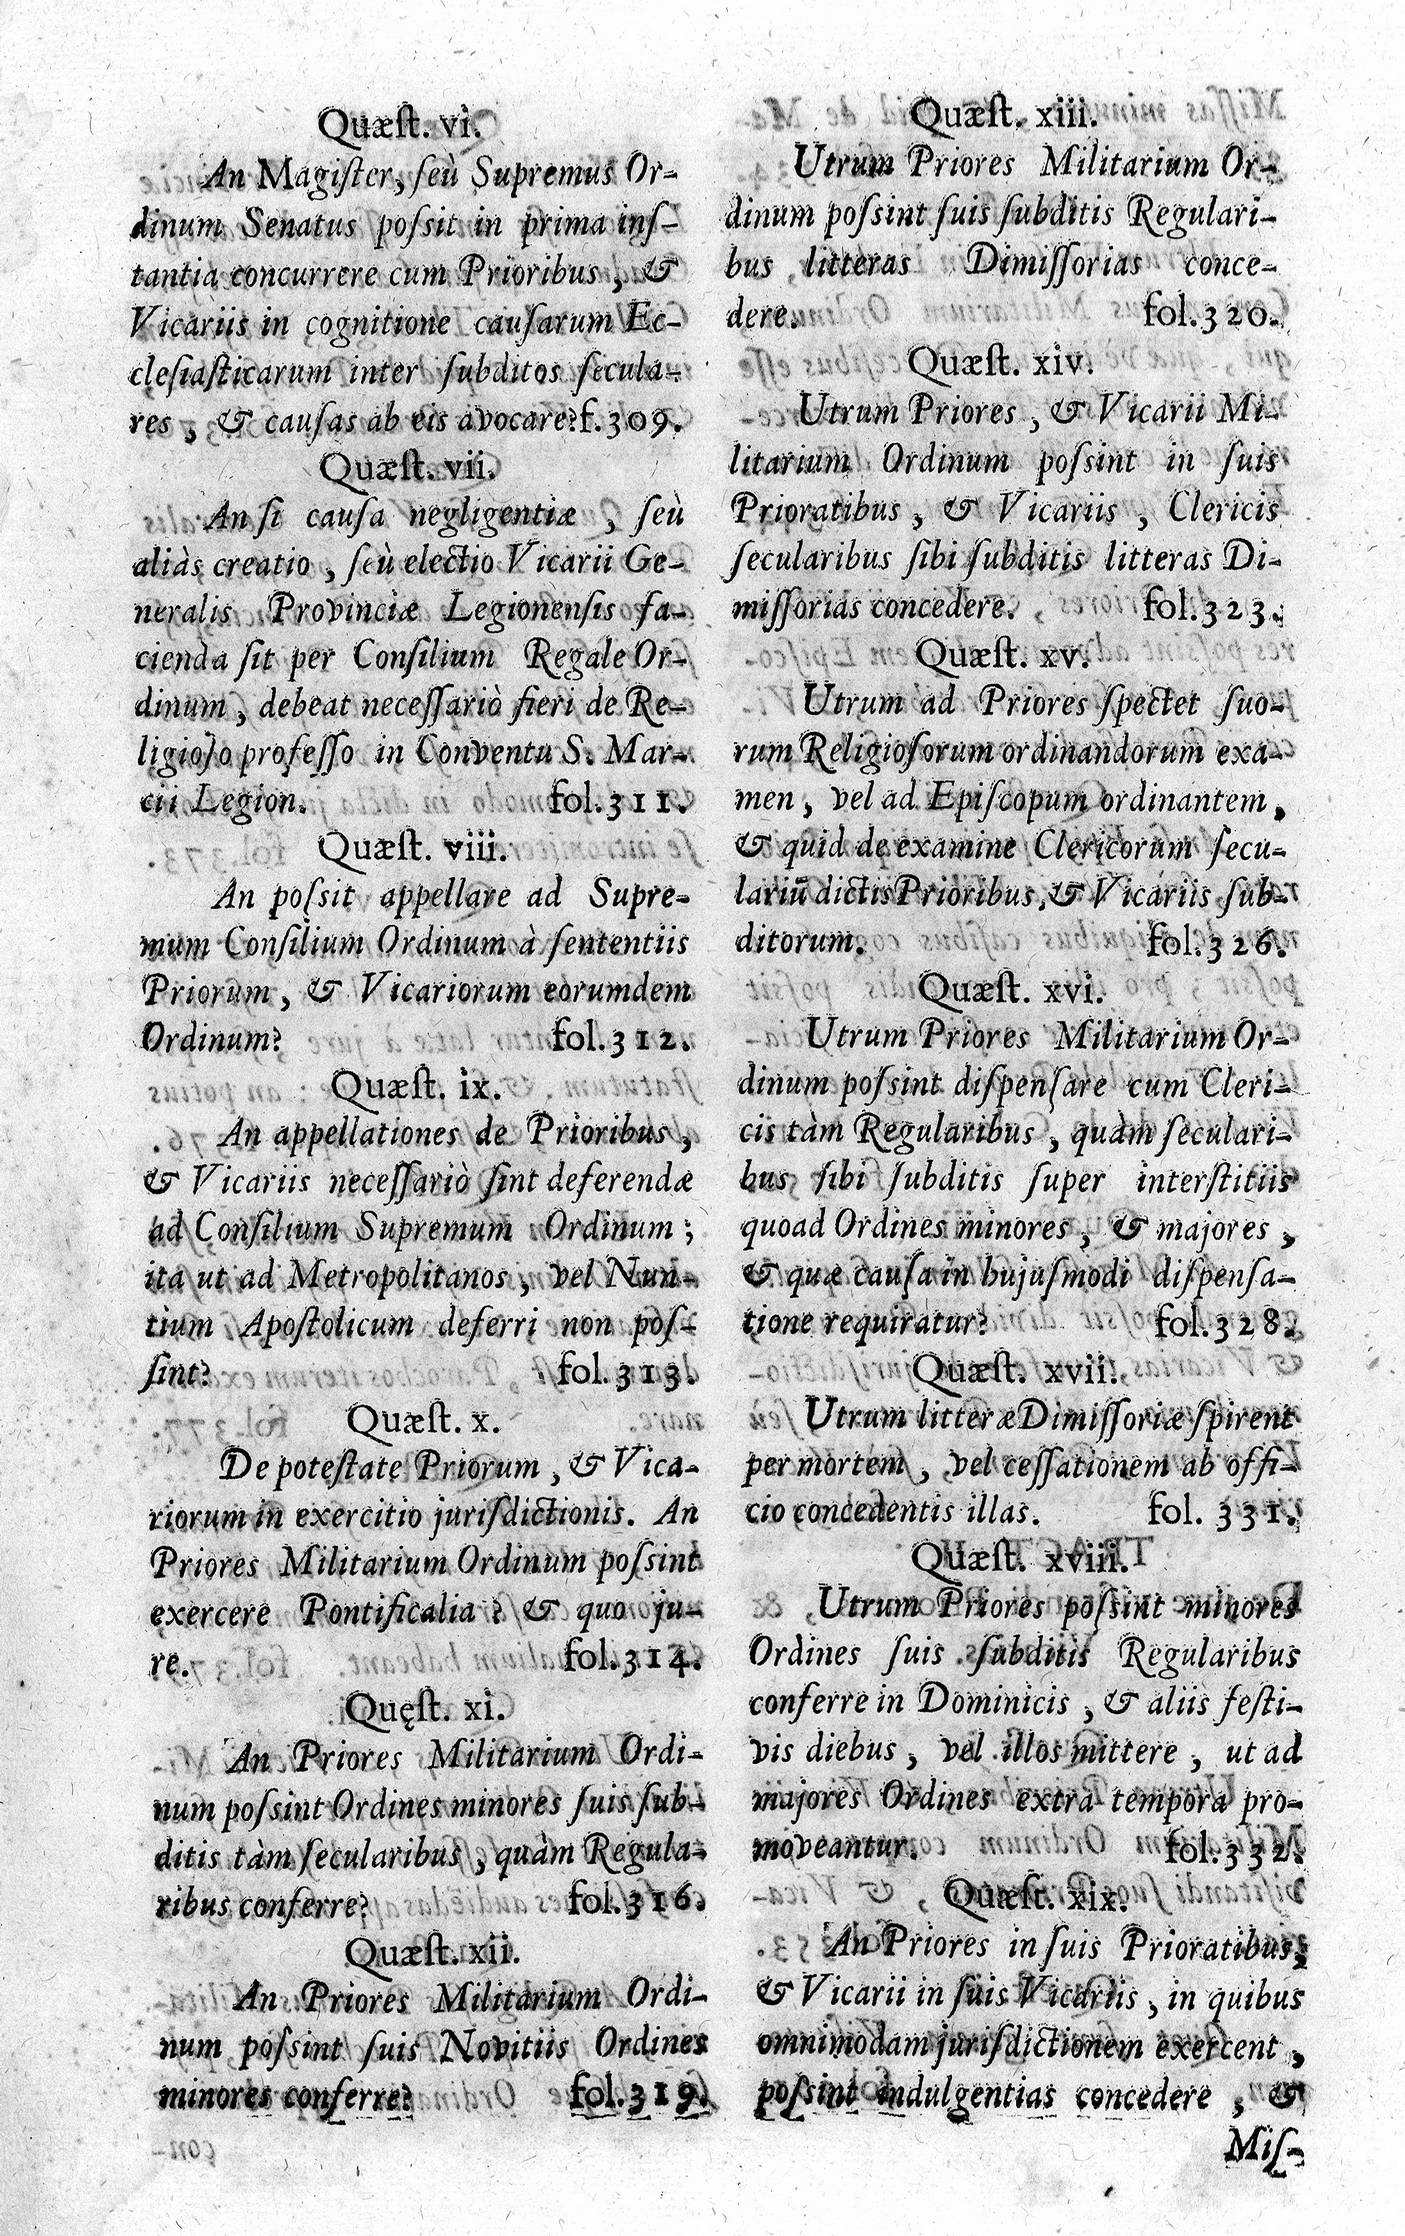 Quæſt. vi.
An Magiſter, ſeù Supremus Or-
dinum Senatus poſsit in prima inſ-
tantia concurrere cum Prioribus, &
Vicariis in cognitione cauſarum Ec-
cleſiaſticarum inter ſubditos ſecula-
res, & cauſas ab eis avocare? f. 309.
Quæſt. vii.
An ſi cauſa negligentiæ, ſeù
aliàs creatio, ſeù electio Vicarii Ge-
neralis Provinciæ Legionenſis fa-
cienda ſit per Conſilium Regale Or-
dinum, debeat neceſſariò fieri de Re-
ligioſo profeſſo in Conventu S. Mar-
cii Legion. fol. 311.
Quæſt. viii.
An poſsit appellare ad Supre-
mum Conſilium Ordinum à ſententiis
Priorum, & Vicariorum eorumdem
Ordinum? fol. 312.
Quæſt. ix.
An appellationes de Prioribus,
& Vicariis neceſſariò ſint deferendæ
ad Conſilium Supremum Ordinum;
ita ut ad Metropolitanos, vel Nun-
tium Apoſtolicum deferri non poſ-
ſint? fol. 313.
Quæſt. x.
De poteſtate Priorum, & Vica-
riorum in exercitio juriſdictionis. An
Priores Militarium Ordinum poſsint
exercere Pontificalia? & quo ju-
re. fol. 314.
Quęſt. xi.
An Priores Militarium Ordi-
num poſsint Ordines minores ſuis ſub-
ditis tàm ſecularibus, quàm Regula-
ribus conferre? fol. 316.
Quæſt. xii.
An Priores Militarium Ordi-
num poſsint ſuis Novitiis Ordines
minores conferre? fol. 319.
Quæſt. xiii.
Utrum Priores Militarium Or-
dinum poſsint ſuis ſubditis Regulari-
bus litteras Dimiſſorias conce-
dere. fol. 320.
Quæſt. xiv.
Utrum Priores, & Vicarii Mi-
litarium Ordinum poſsint in ſuis
Prioratibus, & Vicariis, Clericis
ſecularibus ſibi ſubditis litteras Di-
miſſorias concedere. fol. 323.
Quæſt. xv.
Utrum ad Priores ſpectet ſuo-
rum Religioſorum ordinandorum exa-
men, vel ad Epiſcopum ordinantem,
& quid de examine Clericorum ſecu-
lariũ dictis Prioribus, & Vicariis ſub-
ditorum. fol. 326.
Quæſt. xvi.
Utrum Priores Militarium Or-
dinum poſsint diſpenſare cum Cleri-
cis tàm Regularibus, quàm ſeculari-
bus ſibi ſubditis ſuper interſtitiis
quoad Ordines minores, & majores,
& quæ cauſa in hujuſmodi diſpenſa-
tione requiratur? fol. 328.
Quæſt. xvii.
Utrum litteræ Dimiſſoriæ ſpirent
per mortem, vel ceſſationem ab offi-
cio concedentis illas. fol. 331.
Quæſt. xviii.
Utrum Priores poſsint minores
Ordines ſuis ſubditis Regularibus
conferre in Dominicis, & aliis feſti-
vis diebus, vel illos mittere, ut ad
majores Ordines extra tempora pro-
moveantur. fol. 332.
Quæſt. xix.
An Priores in ſuis Prioratibus,
& Vicarii in ſuis Vicariis, in quibus
omnimodam juriſdictionem exercent,
poſsint indulgentias concedere, &
Miſ-